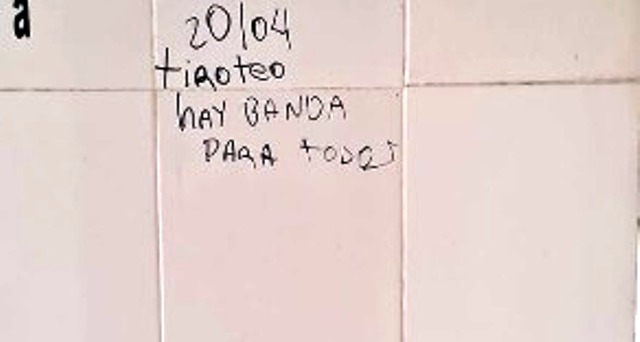 a
20/04
tiroteo
hAY BANDA
PARA todos